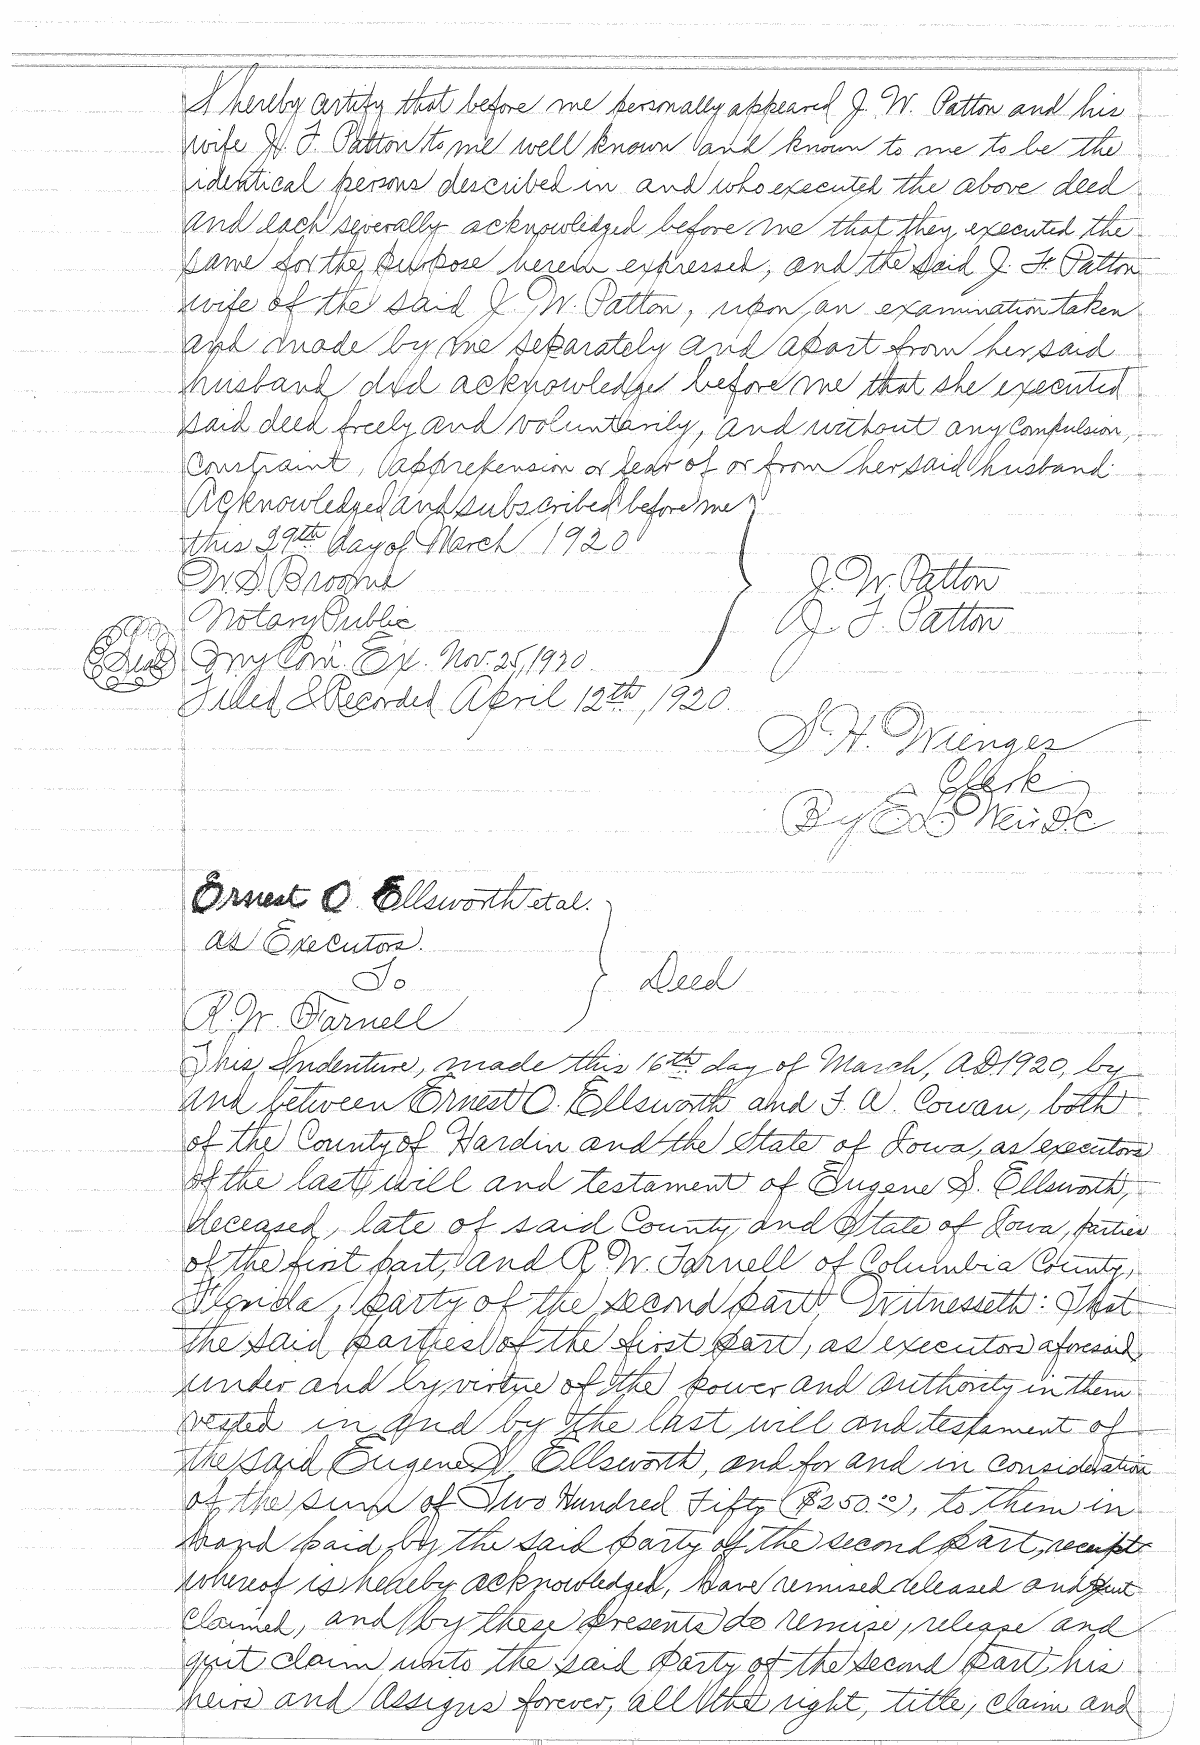 I hereby certify that before me personally appeared J. W. Patton and his
wife J. F. Patton to me well known and known to me to be the
identical persons described in and who executed the above deed
and each severally acknowledged before me that they executed the
same for the purpose herein expressed, and the said J. F. Patton
wife of the said J. W. Patton, upon an examination taken
and made by me separately and apart from her said
husband did acknowledge before me that she executed
said deed freely and voluntarily, and without any Compulsion,
Constraint, apprehension or fear of or from her said husband.
Acknowledged and subscribed before me
this 29th day of March 1920
W. S. Broome
J. W. Patton
Notary Public
J. F. Patton
Seal
My Com. Ex. Nov. 25, 1920.
Filed & Recorded April 12th, 1920.
S. H. Wienges
Clerk
By D.C.
Ernest O. Ellsworth et al.
as Executors.
To
Deed
R. W. Farnell
This Indenture, made this 16th day of March, A.D. 1920, by
and between Ernest O. Ellsworth and F. A. Cowan, both
of the County of Hardin and the State of Iowa, as executors
of the last will and testament of Eugene S. Ellsworth,
deceased, late of said County and State of Iowa, parties
of the first part, and R. W. Farnell of Columbia County,
Florida, party of the second part, Witnesseth: That
the said parties of the first part, as executors aforesaid,
under and by virtue of the power and authority in them
vested in and by the last will and testament of
the said Eugene S. Ellsworth, and for and in consideration
of the sum of Two Hundred Fifty ($250.00), to them in
hand paid by the said party of the second part, receipt
whereof is hereby acknowledged, have remised released and quit
claimed, and by these presents do remise, release and
quit claim unto the said party of the second part, his
heirs and assigns forever, all the right, title, claim and